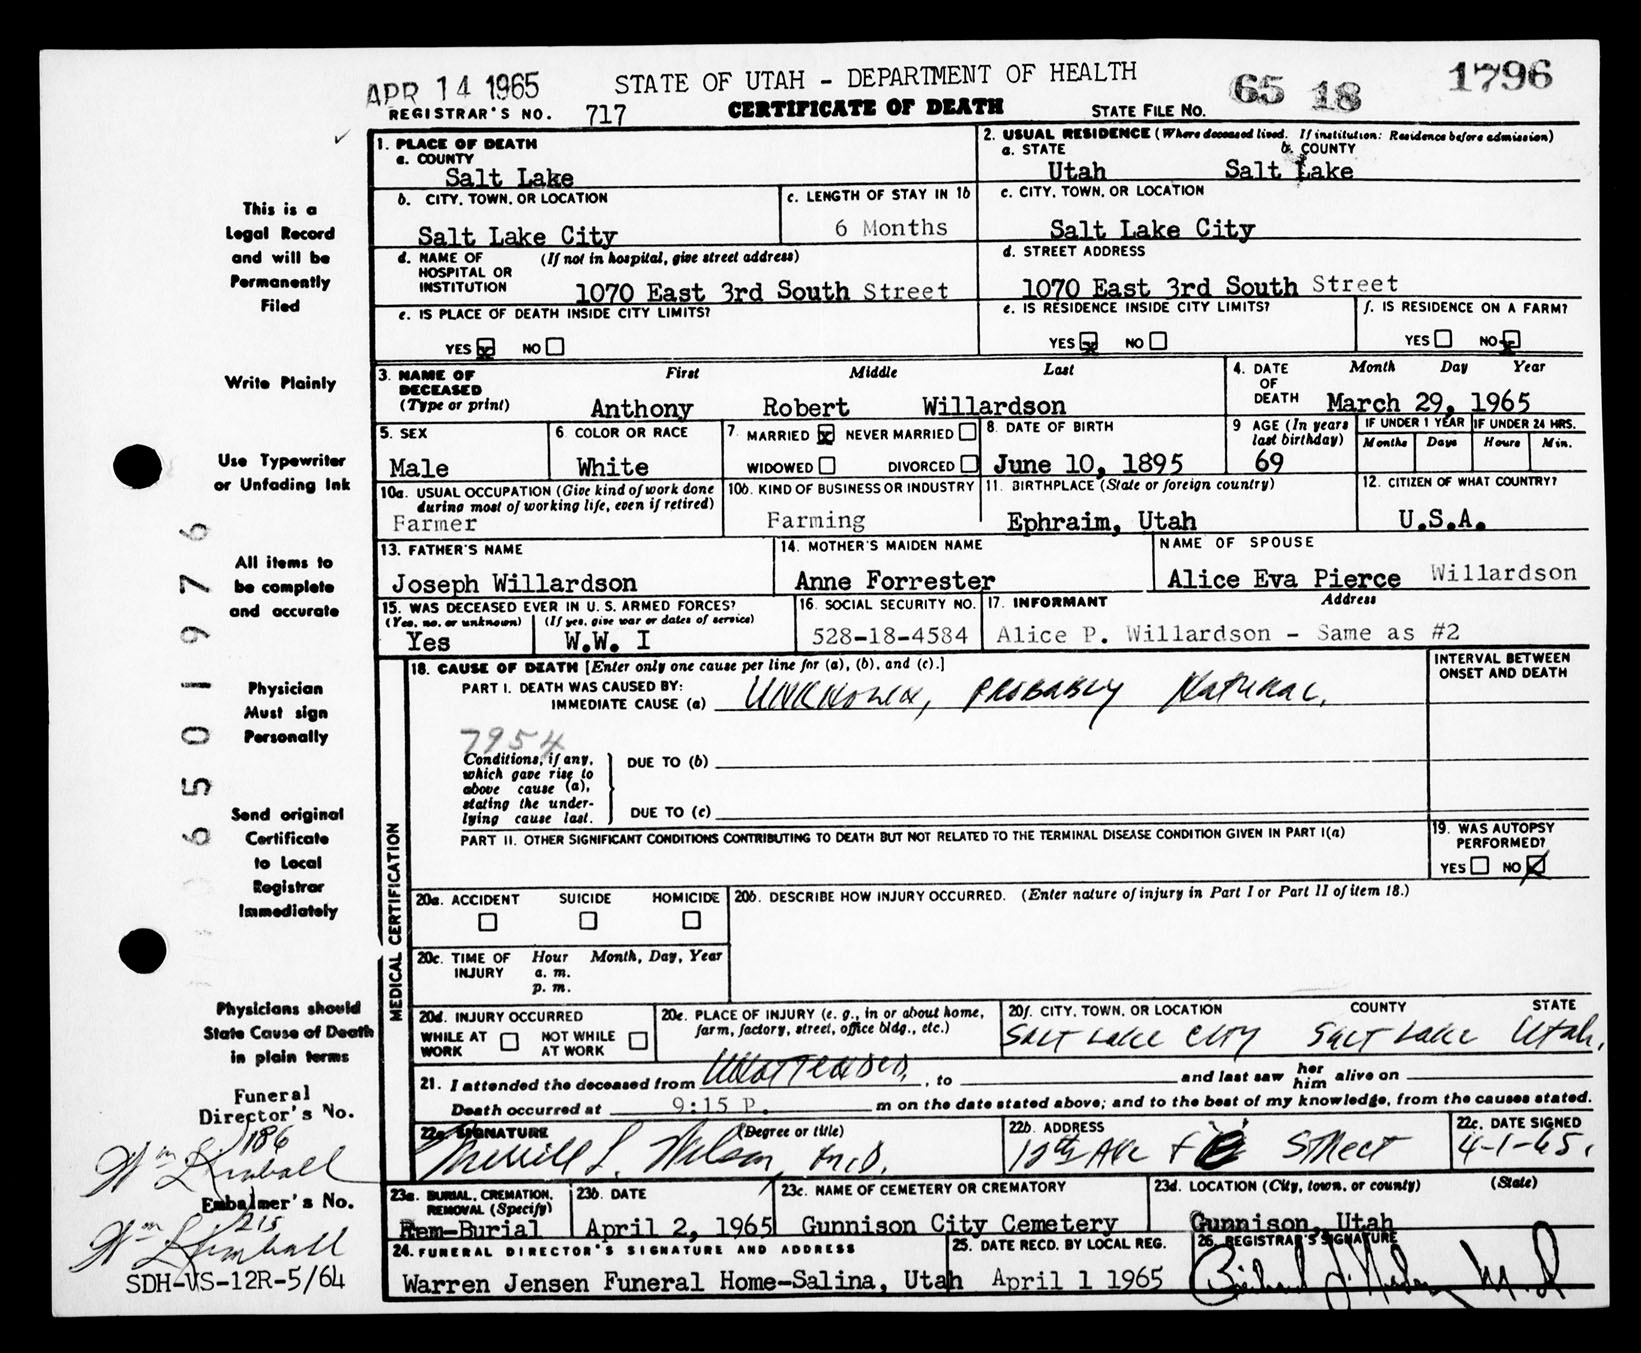 APR 14 1965
STATE OF UTAH - DEPARTMENT OF HEALTH
65 18 1796
REGISTRAR'S NO. 717
CERTIFICATE OF DEATH
STATE FILE NO.
1. PLACE OF DEATH
a. COUNTY
Salt Lake
2. USUAL RESIDENCE (Where deceased lived. If institution: Residence before admission)
a. STATE b. COUNTY
Utah Salt Lake
b. CITY, TOWN, OR LOCATION
Salt Lake City
c. LENGTH OF STAY IN 1b
6 Months
c. CITY, TOWN, OR LOCATION
Salt Lake City
d. NAME OF HOSPITAL OR INSTITUTION (If not in hospital, give street address)
1070 East 3rd South Street
d. STREET ADDRESS
1070 East 3rd South Street
e. IS PLACE OF DEATH INSIDE CITY LIMITS?
YES x NO
e. IS RESIDENCE INSIDE CITY LIMITS?
YES x NO
f. IS RESIDENCE ON A FARM?
YES NO x
3. NAME OF DECEASED (Type or print)
First Middle Last
Anthony Robert Willardson
4. DATE OF DEATH Month Day Year
March 29, 1965
5. SEX
Male
6 COLOR OR RACE
White
7. MARRIED x NEVER MARRIED
WIDOWED DIVORCED
8. DATE OF BIRTH
June 10, 1895
9 AGE (In years last birthday)
69
IF UNDER 1 YEAR IF UNDER 24 HRS.
Months Days Hours Min.
10a. USUAL OCCUPATION (Give kind of work done during most of working life, even if retired)
Farmer
10b. KIND OF BUSINESS OR INDUSTRY
Farming
11. BIRTHPLACE (State or foreign country)
Ephraim, Utah
12. CITIZEN OF WHAT COUNTRY?
U.S.A.
13. FATHER'S NAME
Joseph Willardson
14. MOTHER'S MAIDEN NAME
Anne Forrester
NAME OF SPOUSE
Alice Eva Pierce Willardson
15. WAS DECEASED EVER IN U. S. ARMED FORCES?
(Yes, no, or unknown) (If yes, give war or dates of service)
Yes W.W. I
16. SOCIAL SECURITY NO.
528-18-4584
17. INFORMANT Address
Alice P. Willardson - Same as #2
18. CAUSE OF DEATH [Enter only one cause per line for (a), (b), and (c).]
INTERVAL BETWEEN ONSET AND DEATH
PART I. DEATH WAS CAUSED BY:
IMMEDIATE CAUSE (a) Unknown, Probably Natural.
7954
Conditions, if any, which gave rise to above cause (a), stating the underlying cause last.
DUE TO (b)
DUE TO (c)
PART II. OTHER SIGNIFICANT CONDITIONS CONTRIBUTING TO DEATH BUT NOT RELATED TO THE TERMINAL DISEASE CONDITION GIVEN IN PART I(a)
19. WAS AUTOPSY PERFORMED?
YES NO x
MEDICAL CERTIFICATION
20a. ACCIDENT SUICIDE HOMICIDE
20b. DESCRIBE HOW INJURY OCCURRED. (Enter nature of injury in Part I or Part II of item 18.)
20c. TIME OF INJURY Hour Month, Day, Year
a. m.
p. m.
20d. INJURY OCCURRED
WHILE AT WORK NOT WHILE AT WORK
20e. PLACE OF INJURY (e. g., in or about home, farm, factory, street, office bldg., etc.)
20f. CITY, TOWN, OR LOCATION COUNTY STATE
Salt Lake City Salt Lake Utah.
21. I attended the deceased from Unattended, to and last saw her him alive on
Death occurred at 9:15 P. m on the date stated above; and to the best of my knowledge, from the causes stated.
22a. SIGNATURE (Degree or title)
Merrill L. Wilson, M.D.
22b. ADDRESS
12th Ave + E Street
22c. DATE SIGNED
4-1-65.
23a. BURIAL, CREMATION, REMOVAL (Specify)
Rem-Burial
23b. DATE
April 2, 1965
23c. NAME OF CEMETERY OR CREMATORY
Gunnison City Cemetery
23d. LOCATION (City, town, or county) (State)
Gunnison, Utah
24. FUNERAL DIRECTOR'S SIGNATURE AND ADDRESS
Warren Jensen Funeral Home-Salina, Utah
25. DATE RECD. BY LOCAL REG.
April 1 1965
26. REGISTRAR'S SIGNATURE
This is a
Legal Record
and will be
Permanently
Filed
Write Plainly
Use Typewriter
or Unfading Ink
All items to
be complete
and accurate
Physician
Must sign
Personally
Send original
Certificate
to Local
Registrar
Immediately
Physicians should
State Cause of Death
in plain terms
Funeral
Director's No.
186
Wm L Kimball
Embalmer's No.
215
Wm L Kimball
SDH-VS-12R-5/64
6501976